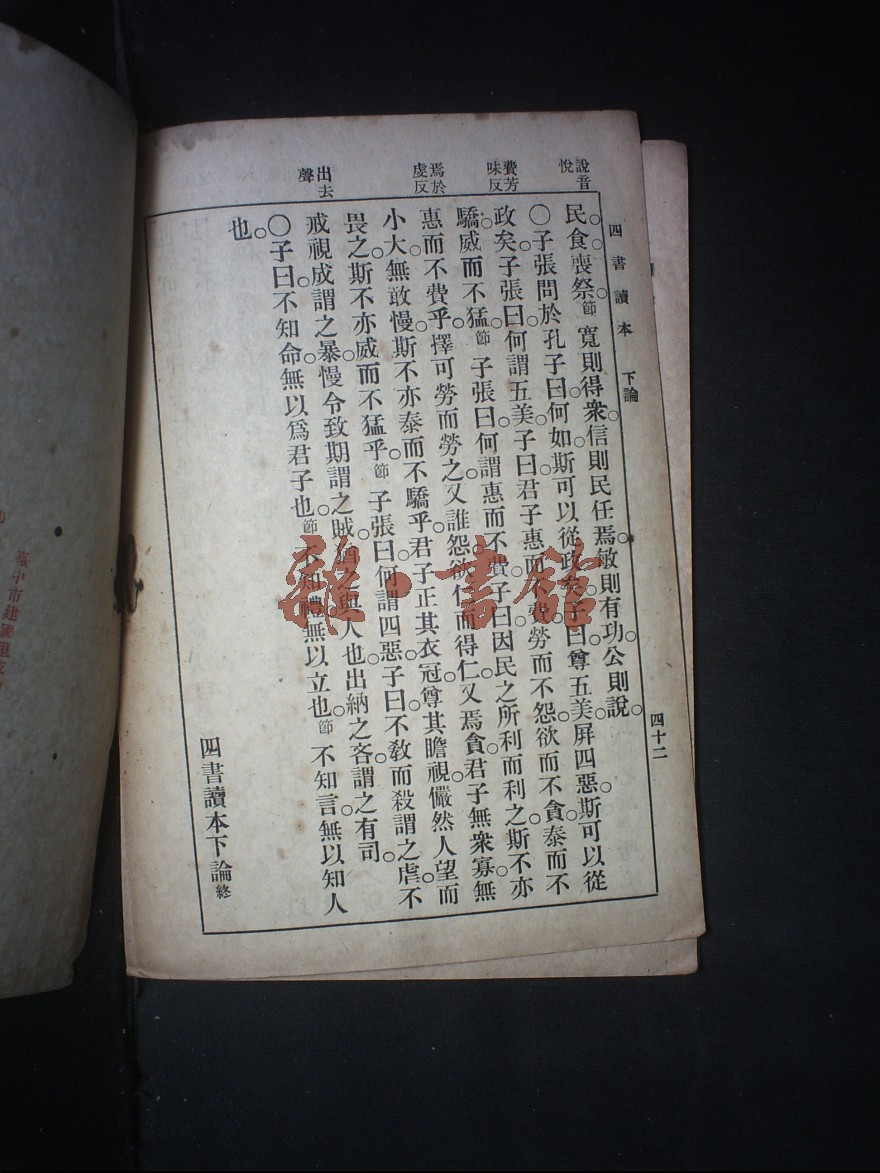 四書讀本 下論 四十二
說音悅
費芳味反
焉於虔反
出去聲
民食喪祭。節寬則得衆。信則民任焉。敏則有功。公則說。
〇子張問於孔子曰。何如斯可以從政矣。子曰。尊五美。屛四惡。斯可以從
政矣。子張曰。何謂五美。子曰。君子惠而不費。勞而不怨。欲而不貪。泰而不
驕。威而不猛。節子張曰。何謂惠而不費。子曰。因民之所利而利之。斯不亦
惠而不費乎。擇可勞而勞之。又誰怨。欲仁而得仁。又焉貪。君子無衆寡。無
小大。無敢慢。斯不亦泰而不驕乎。君子正其衣冠。尊其瞻視。儼然人望而
畏之。斯不亦威而不猛乎。節子張曰。何謂四惡。子曰。不敎而殺謂之虐。不
戒視成謂之暴。慢令致期謂之賊。猶之與人也。出納之吝。謂之有司。
〇子曰。不知命。無以爲君子也。節不知禮。無以立也。節不知言。無以知人
也。
四書讀本下論終
雜·書館
臺中市建國里